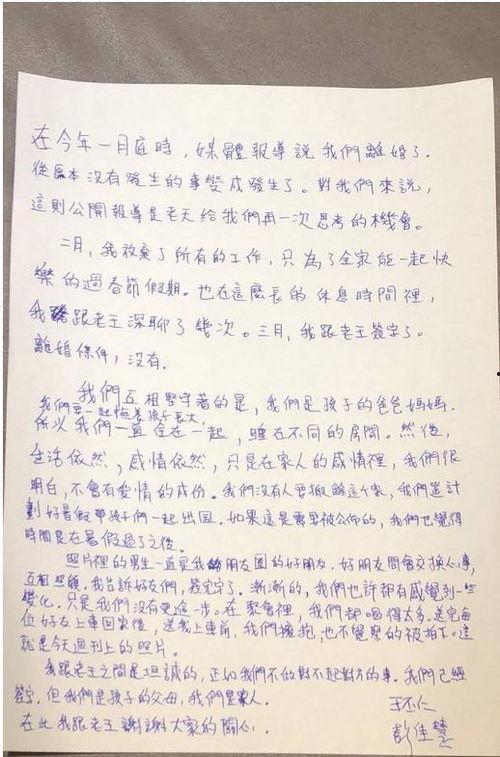 在今年一月底時，媒體報導說我們離婚了.
從原本沒有發生的事變成發生了。對我們來說，
這則公開報導是老天給我們再一次思考的機會。
二月，我放棄了所有的工作，只為了全家能一起快
樂的過春節假期。也在這麼長的休息時間裡，
我跟老王深聊了幾次。三月，我跟老王簽字了。
離婚條件，沒有.
我們互相堅守著的是，我們是孩子的爸爸媽媽.
我們要一起陪著孩子長大,
所以我們一直住在一起，睡在不同的房間。然後，
生活依然，感情依然，只是在家人的感情裡，我們很
明白，不會有愛情的成份。我們沒有人要搬離這個家，我們還計
劃好暑假帶孩子們一起出國。如果這是需要被公佈的，我們也覺得
時間是在暑假過了之後。
照片裡的男生一直是我朋友圈的好朋友.好朋友間會交換心事，
互相照顧，我告訴好友們，簽完字了。漸漸的，我們也許都有感覺到一些
變化。只是我們沒有更進一步。在聚會裡，我們都喝得太多。送完每
位好友上車回家後，送我上車前，我們擁抱，也不覺察的被拍下。這
就是今天週刊上的照片。
我跟老王之間是坦誠的，正如我們不做對不起對方的事。我們已經
簽字，但我們是孩子的父母，我們是家人。
王丕仁
在此我跟老王謝謝大家的關心.
彭佳慧